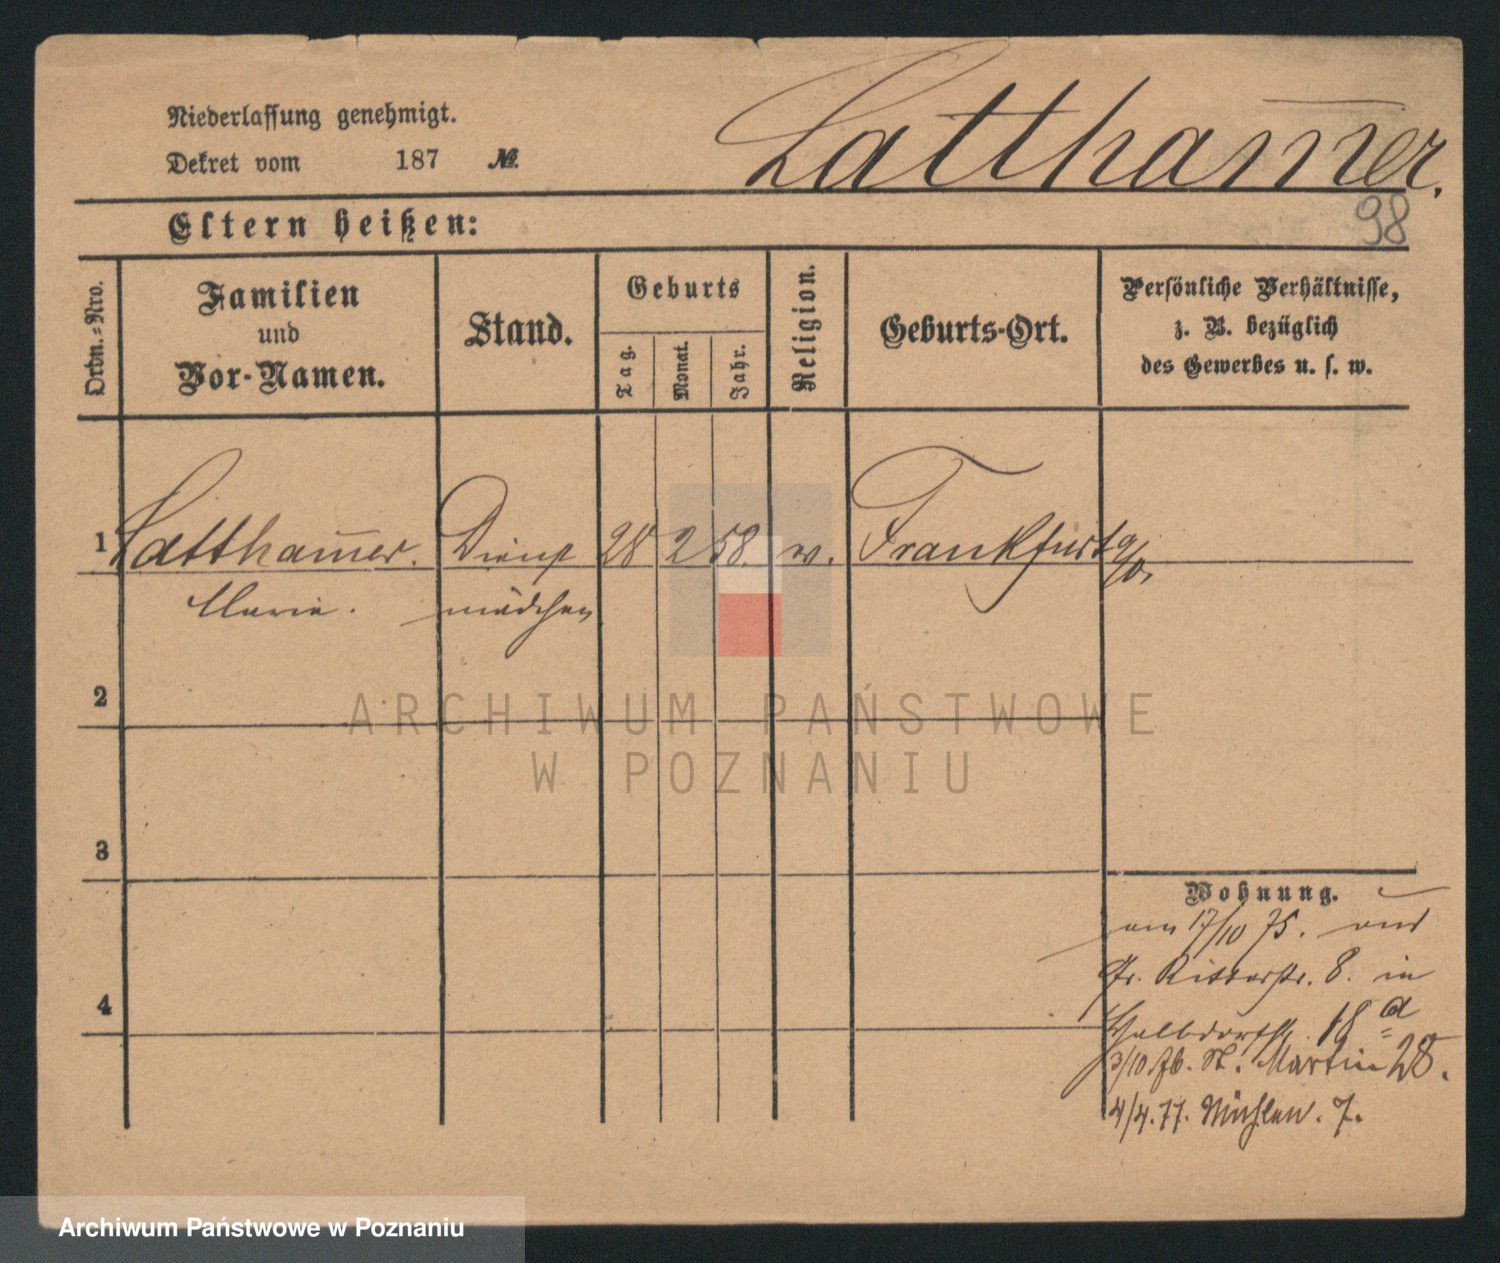 Niederlassung genehmigt.
Dekret vom 187 №.
Lattham̅er.
98
Eltern heißen:
Ordn.=Nro.
Familien
und
Vor-Namen.
Stand.
Geburts
Tag.
Monat.
Jahr.
Religion.
Geburts-Ort.
Persönliche Verhältnisse,
z. B. bezüglich
des Gewerbes u. s. w.
1 Lattham̅er. Dienst 28 2 58. ev. Frankfurt a/O.
Marie. mädchen
2
3
4
Wohnung.
am 17/10 75. aus
Gr. Ritterstr. 8. in
Halbdorfstr. 18 a
3/10 76. St. Martin 28.
4/4. 77. Mühlen. 7.
ARCHIWUM PAŃSTWOWE
W POZNANIU
Archiwum Państwowe w Poznaniu